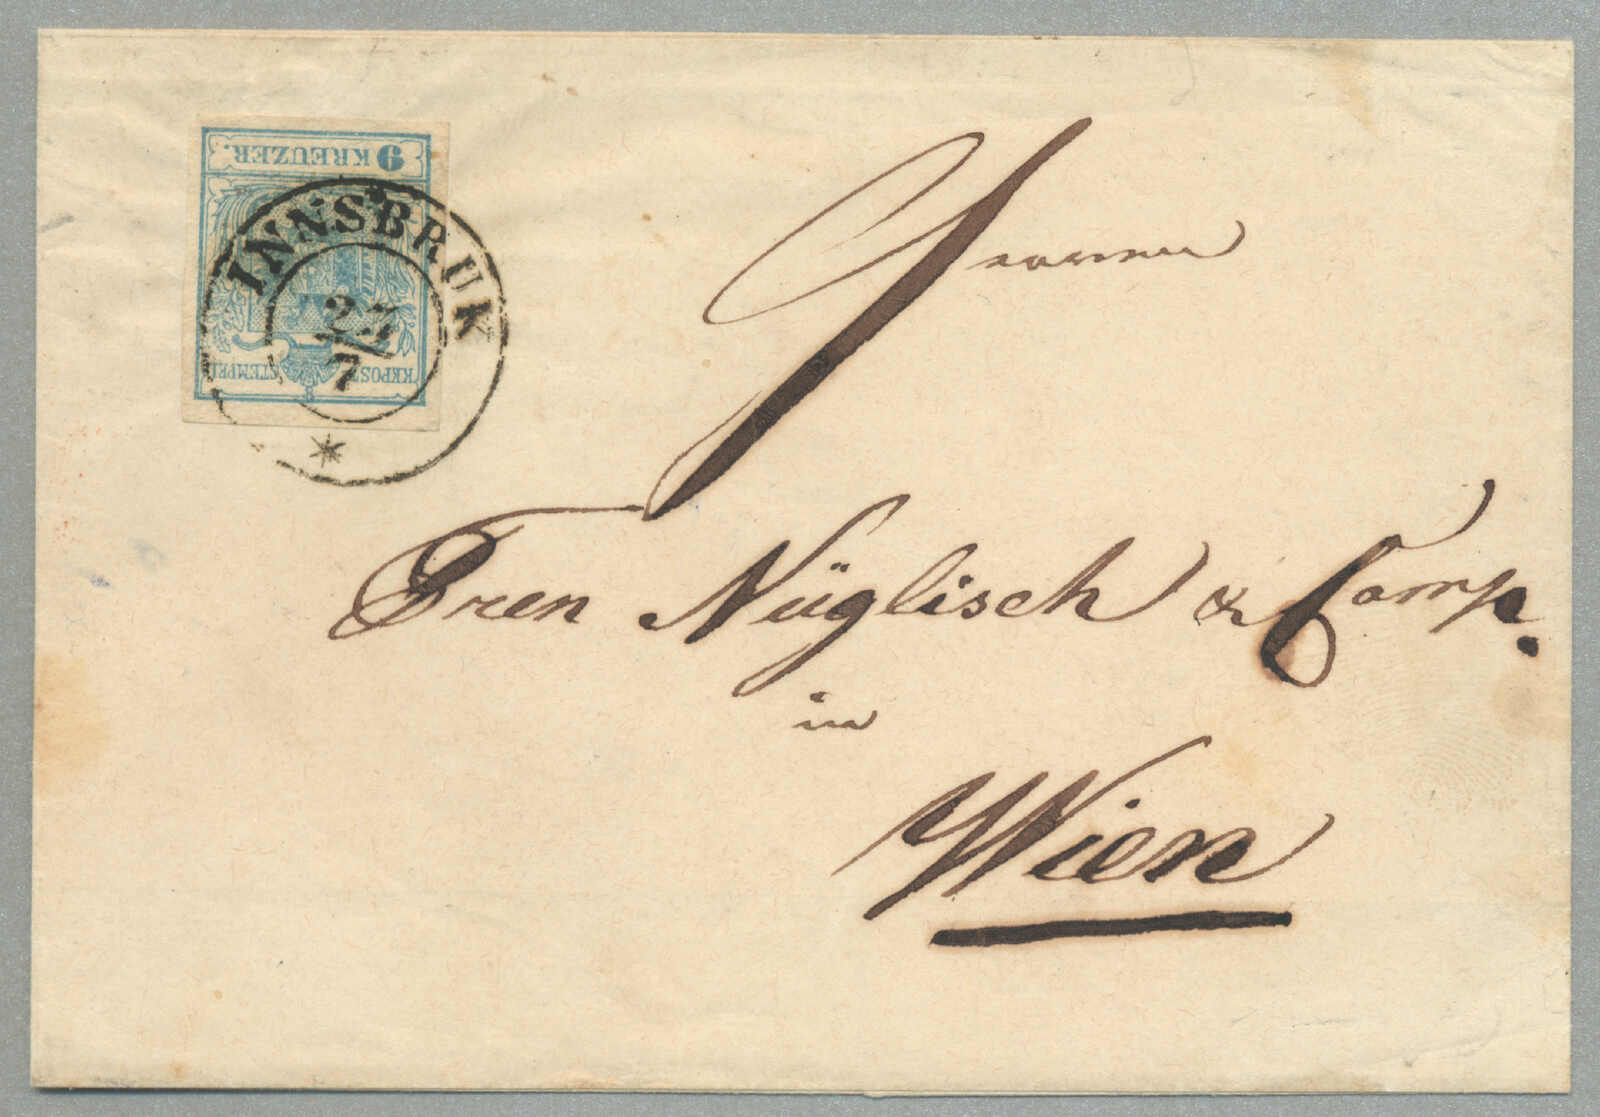 9 KREUZER.
KKPOST STEMPEL
INNSBRUK
23
7
Herren
Fren Nüglisch & Comp.
in
Wien